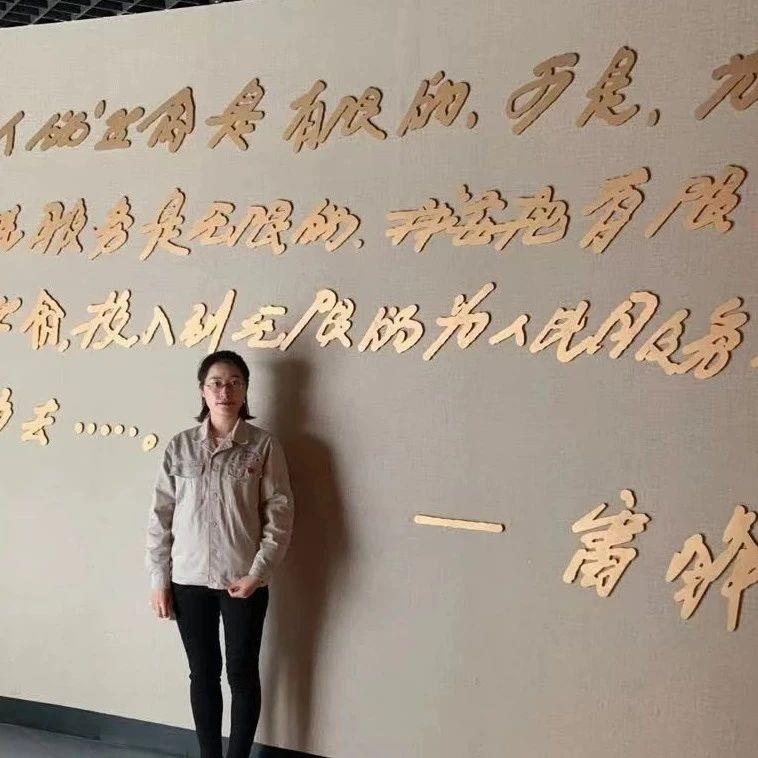 人的生命是有限的,可是,为
民服务是无限的,我要把有限
生命,投入到无限的为人民服务
中去……。
—雷锋